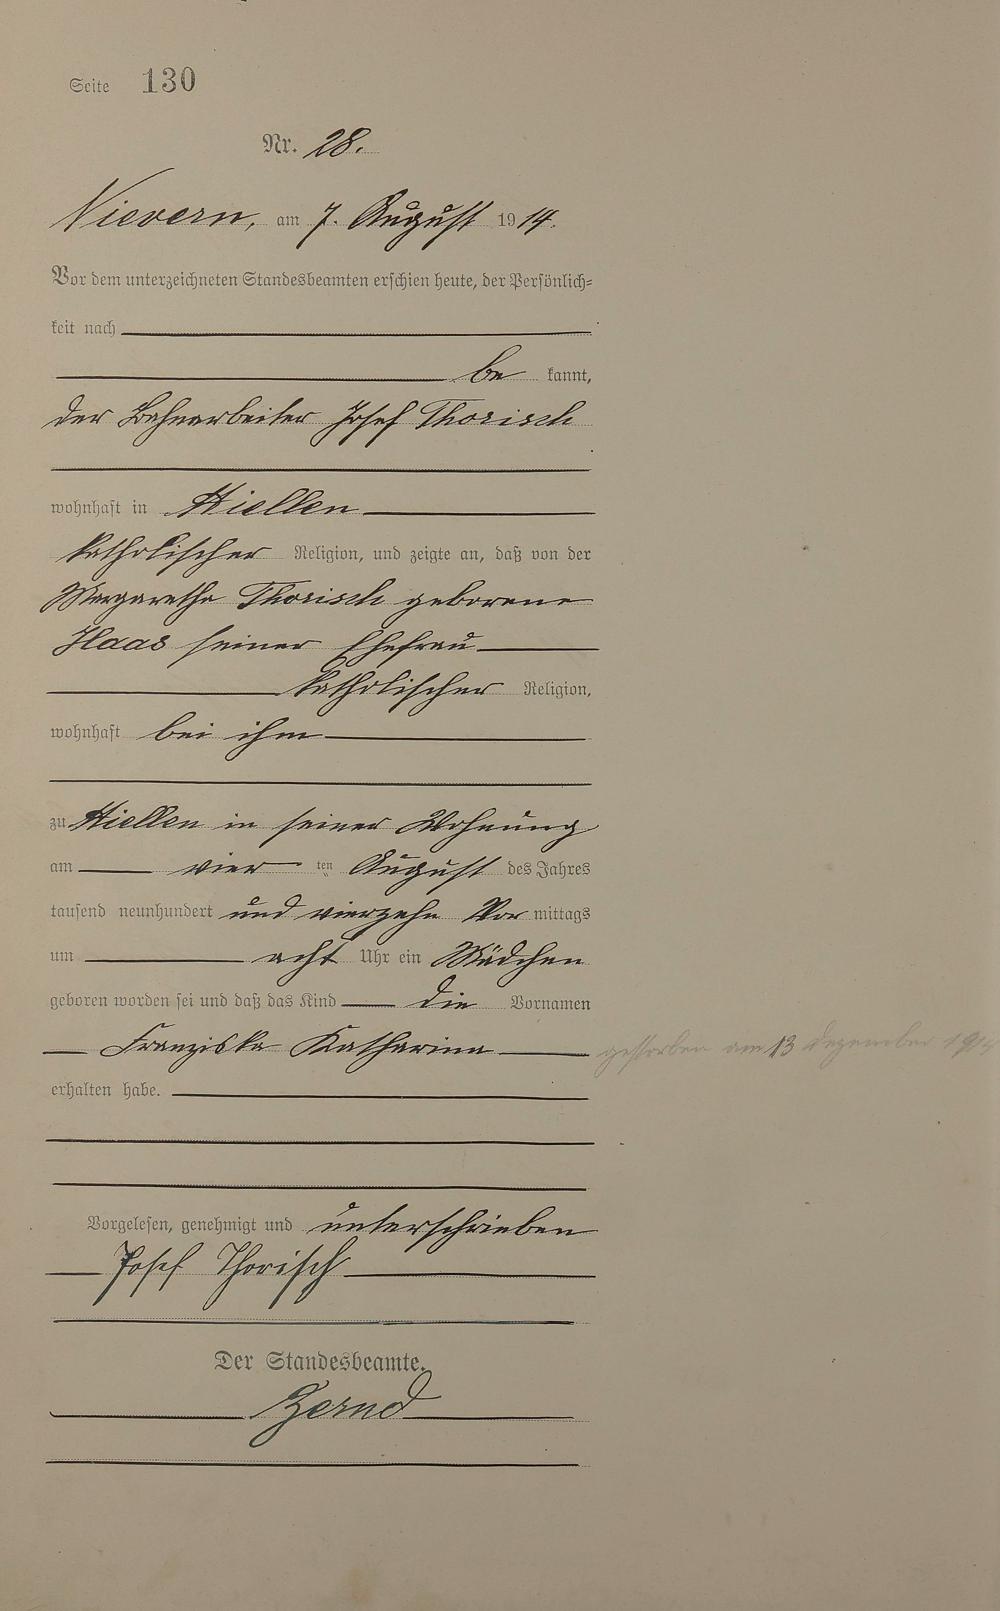 Seite 130
Nr. 28.
Nievern, am 7. August 1914.
Vor dem unterzeichneten Standesbeamten erschien heute, der Persönlich=
keit nach
be kannt,
der Bahnarbeiter Josef Thorisch
wohnhaft in Miellen
katholischer Religion, und zeigte an, daß von der
Margaretha Thorisch geborene
Haas seiner Ehefrau
katholischer Religion,
wohnhaft bei ihm
zu Miellen in seiner Wohnung
am vier ten August des Jahres
tausend neunhundert und vierzehn Vor mittags
um acht Uhr ein Mädchen
geboren worden sei und daß das Kind die Vornamen
Franziska Katharina
gestorben am 13 Dezember
erhalten habe.
Vorgelesen, genehmigt und unterschrieben
Josef Thorisch
Der Standesbeamte.